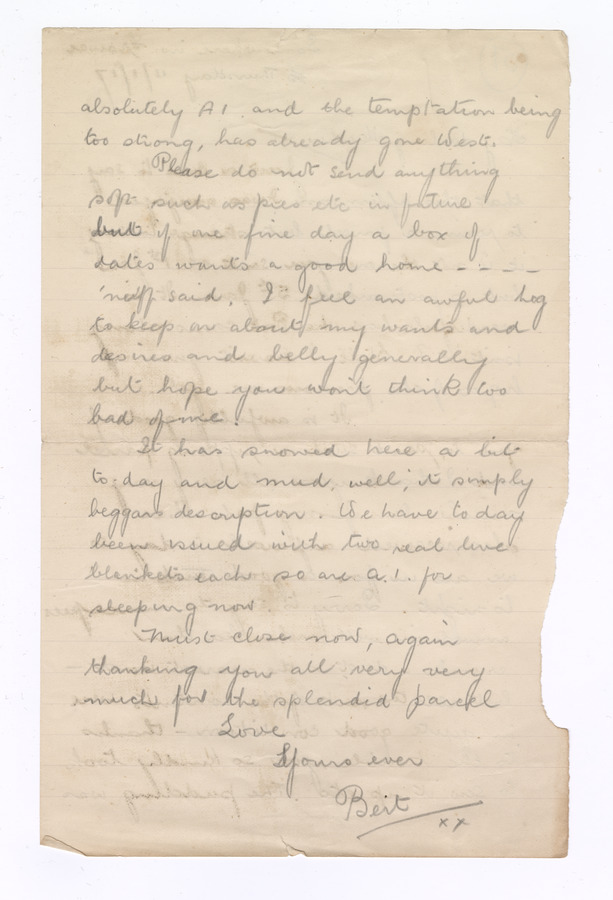 absolutely A1. and the temptation being
too strong, has already gone West.
Please do not send anything
soft such as pies etc in future
but if one fine day a box of
dates wants a good home - - - -
'nuff said, I feel an awful hog
to keep on about my wants and
desires and belly generally
but hope you won't think too
bad of me.
It has snowed here a bit
to-day and mud, well, it simply
beggars description. We have to day
been issued with two real live
blankets each so are A.1. for
sleeping now.
Must close now, again
thanking you all very very
much for the splendid parcel
Love
Yours ever
Bert
xx